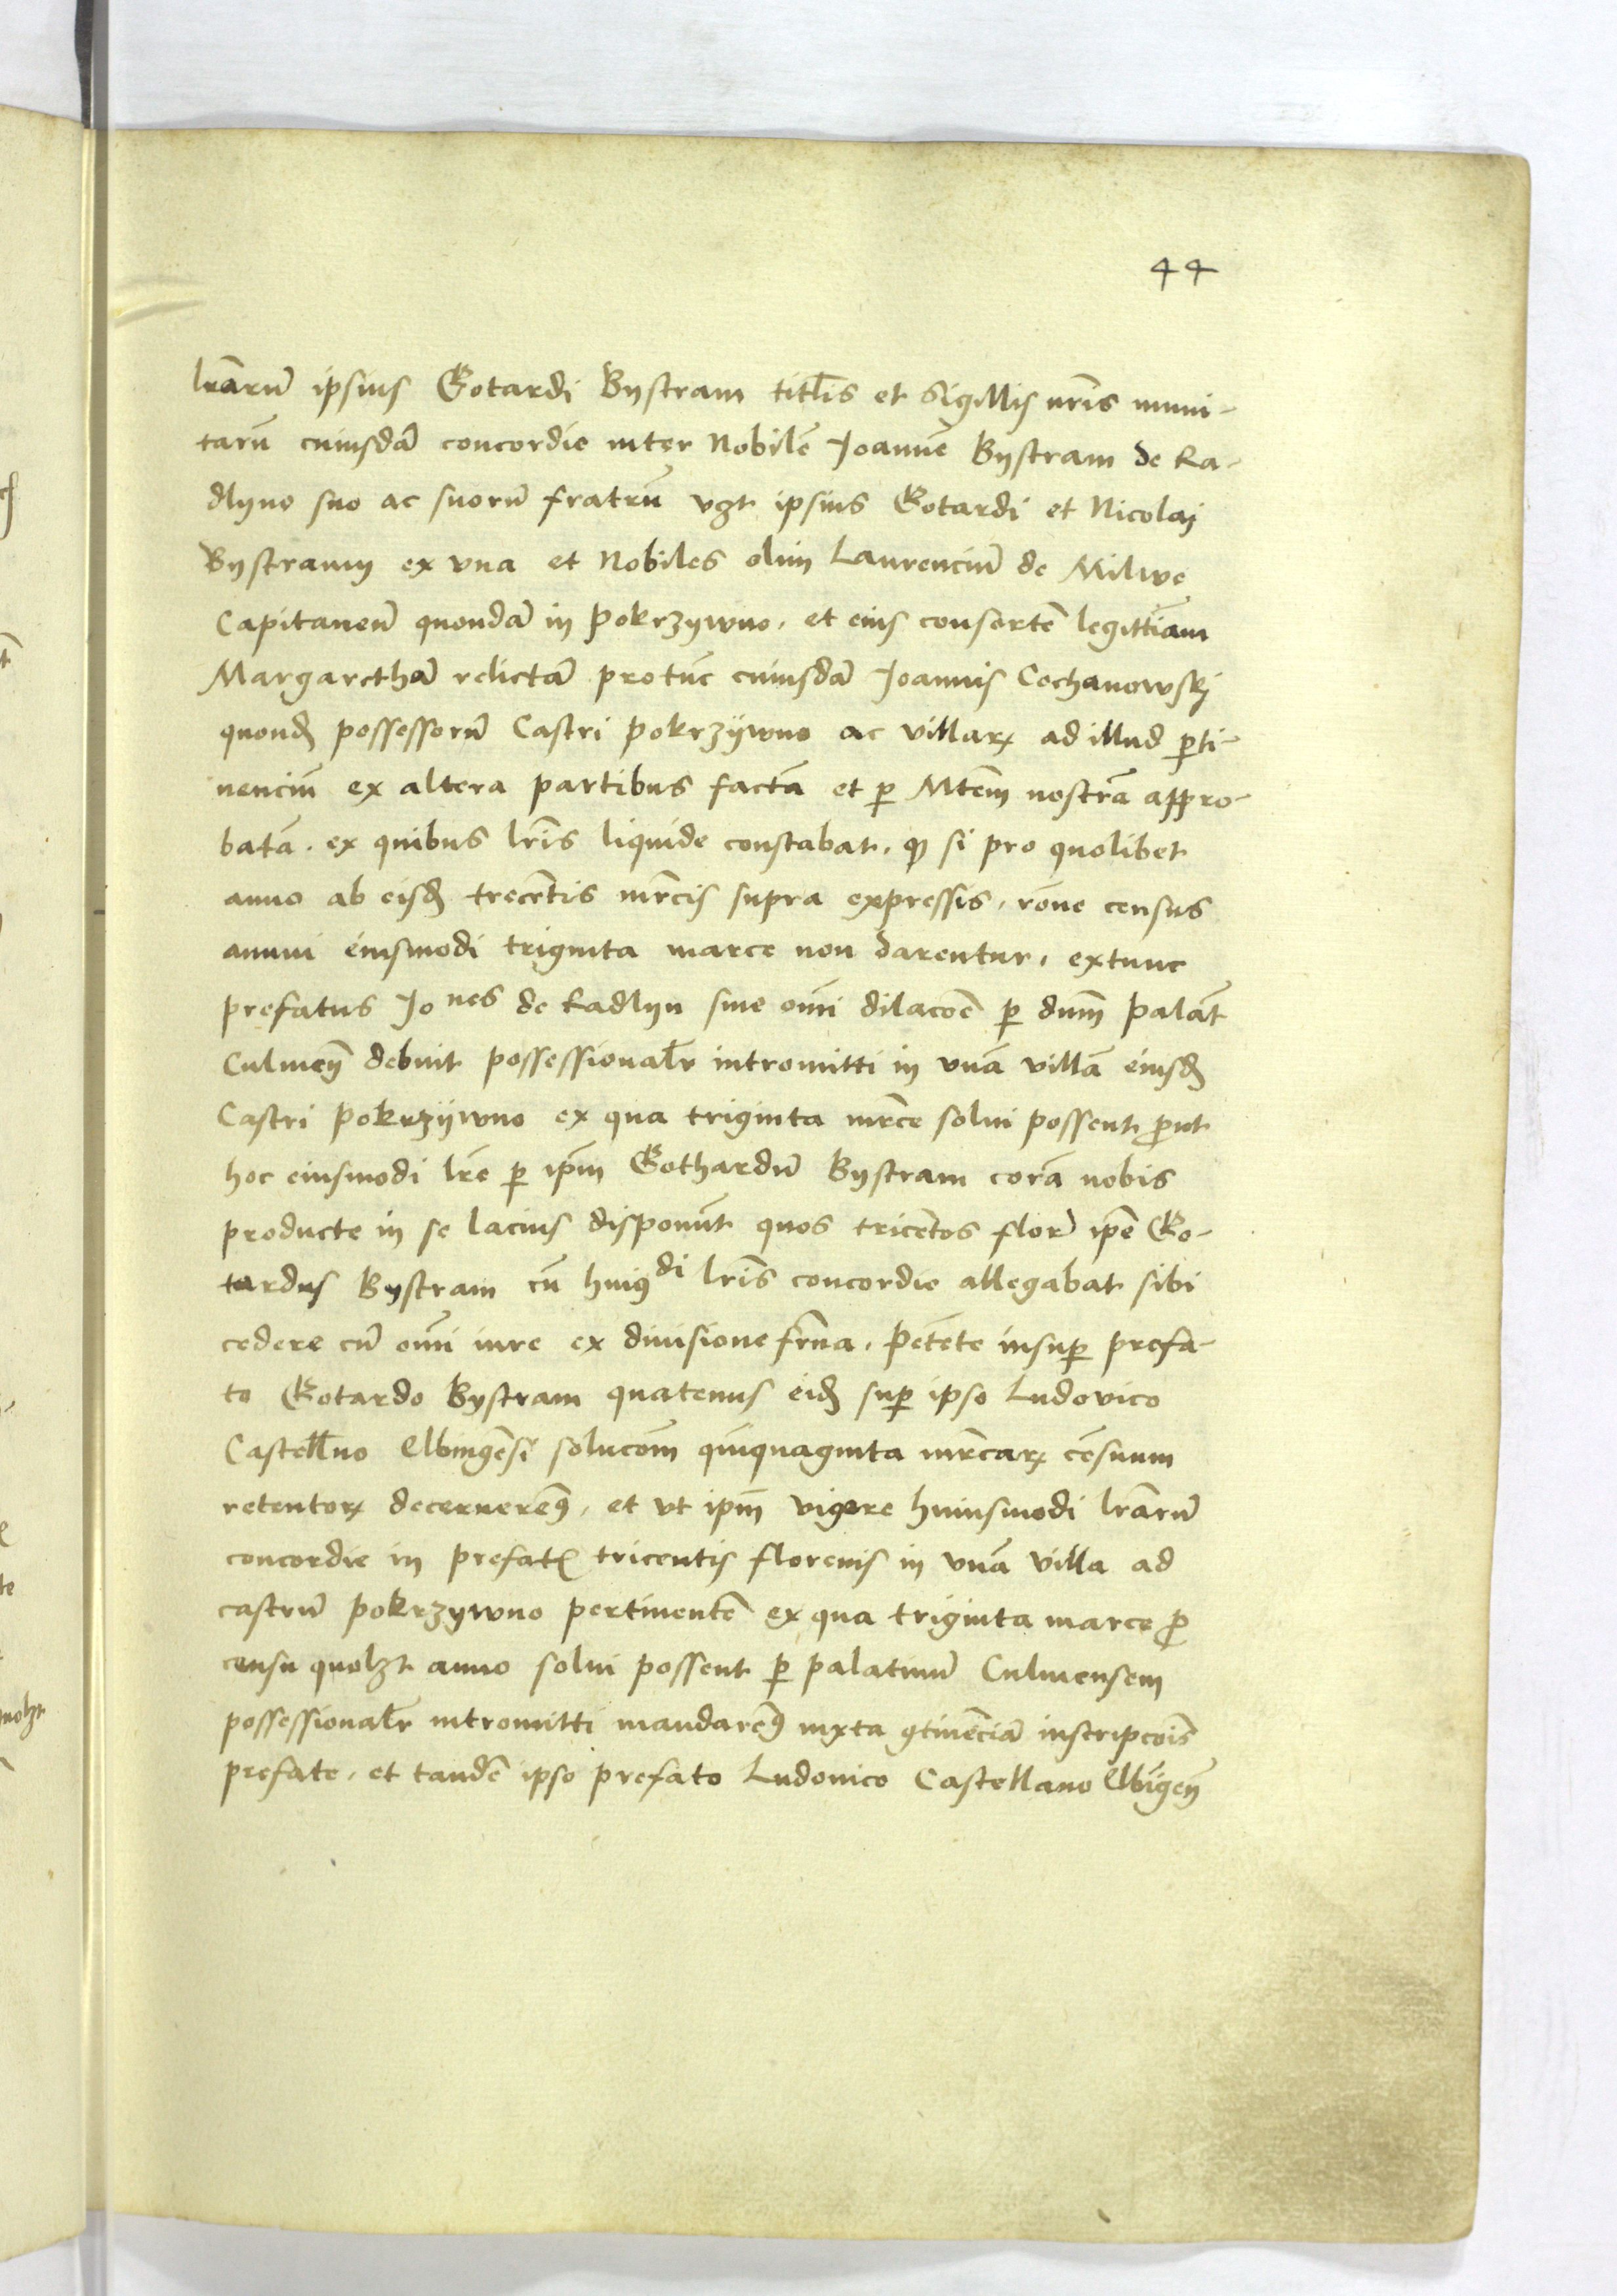 44
lrarũ ipsius Gotardi Bystram titlis et sigillis nris muni-
tarũ cuiusdã concordie inter Nobilẽ Joannẽ Bystram de Ra-
dlyno suo ac suorũ fratrũ vzt ipsius Gotardi et Nicolaj
Bystramy ex vna et Nobiles olim Laurenciũ de Milwe
Capitaneũ quondã in Pokrzywno, et eius consortẽ legittiam
Margarethã relictã protũc cuiusdã Joannis Cochanowskj
quond possessorũ Castri Pokrzÿwno ac villarꝝ ad illud ꝑti-
nenciũ ex altera partibus factã et ꝑ Mtem nostrã appro-
batã. ex quibus lris liquide constabat, ꝙ si pro quolibet
anno ab eisd trecẽtis mrcis supra expressis, rõne census
annui eiusmodi triginta marce non darentur, extunc
prefatus Jo nes de Radlyn sine omi dilacõe ꝑ dnm Palãt
Culmeñ debuit possessionalr intromitti in vnã villã eiusd
Castri Pokrzÿwno ex qua triginta mrce solui possent ꝓut
hoc eiusmodi lre ꝑ ipm Gothardũ Bystram corã nobis
producte in se lacius disponũt quos tricẽtos flor ipe Go-
tardus Bystram cũ huiꝰdi lris concordie allegabat sibi
cedere cũ omi iure ex diuisione frna, petẽte insuꝑ prefa-
to Gotardo Bystram quatenus eid suꝑ ipso Ludovico
Castellno Elbingẽsi solucõm quiquaginta mrcarꝝ cẽsuum
retentorꝝ decernerẽꝰ, et vt ipm vigore huiusmodi lrarũ
concordie in prefatꝭ tricentis florenis in vnã villa ad
castrũ Pokrzywno pertinentẽ ex qua triginta marce ꝓ
censu quolzt anno solui possent ꝑ palatinũ Culmensem
possessionalr intromitti mandarẽꝰ iuxta ꝯtinẽciã inscripcõis
prefate, et tandẽ ipso prefato Ludouico Castellano Elbĩgeñ